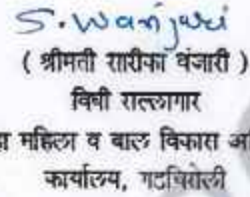 S. Wanjari
( श्रीमती सारीका वंजारी )
विधी सल्लागार
महिला व बाल विकास
कार्यालय, गडचिरोली